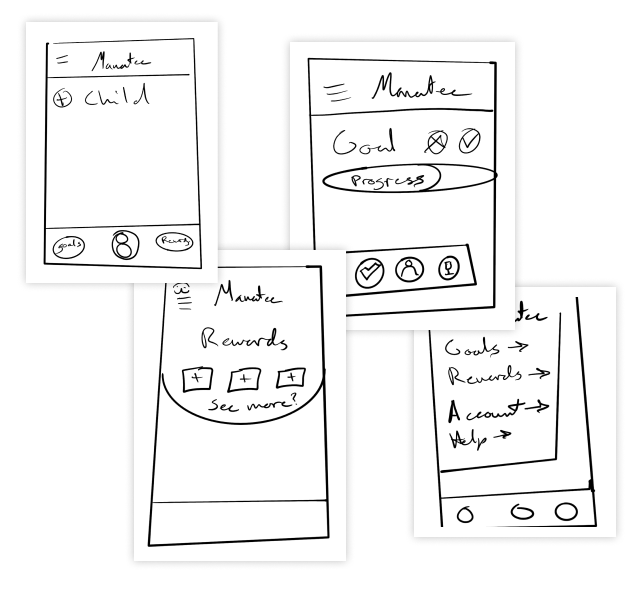 Manatee
+ Child
goals
Manatee
Goal
Progress
Manatee
Rewards
+ + +
See more?
tee
Goals →
Rewards →
Account →
Help →